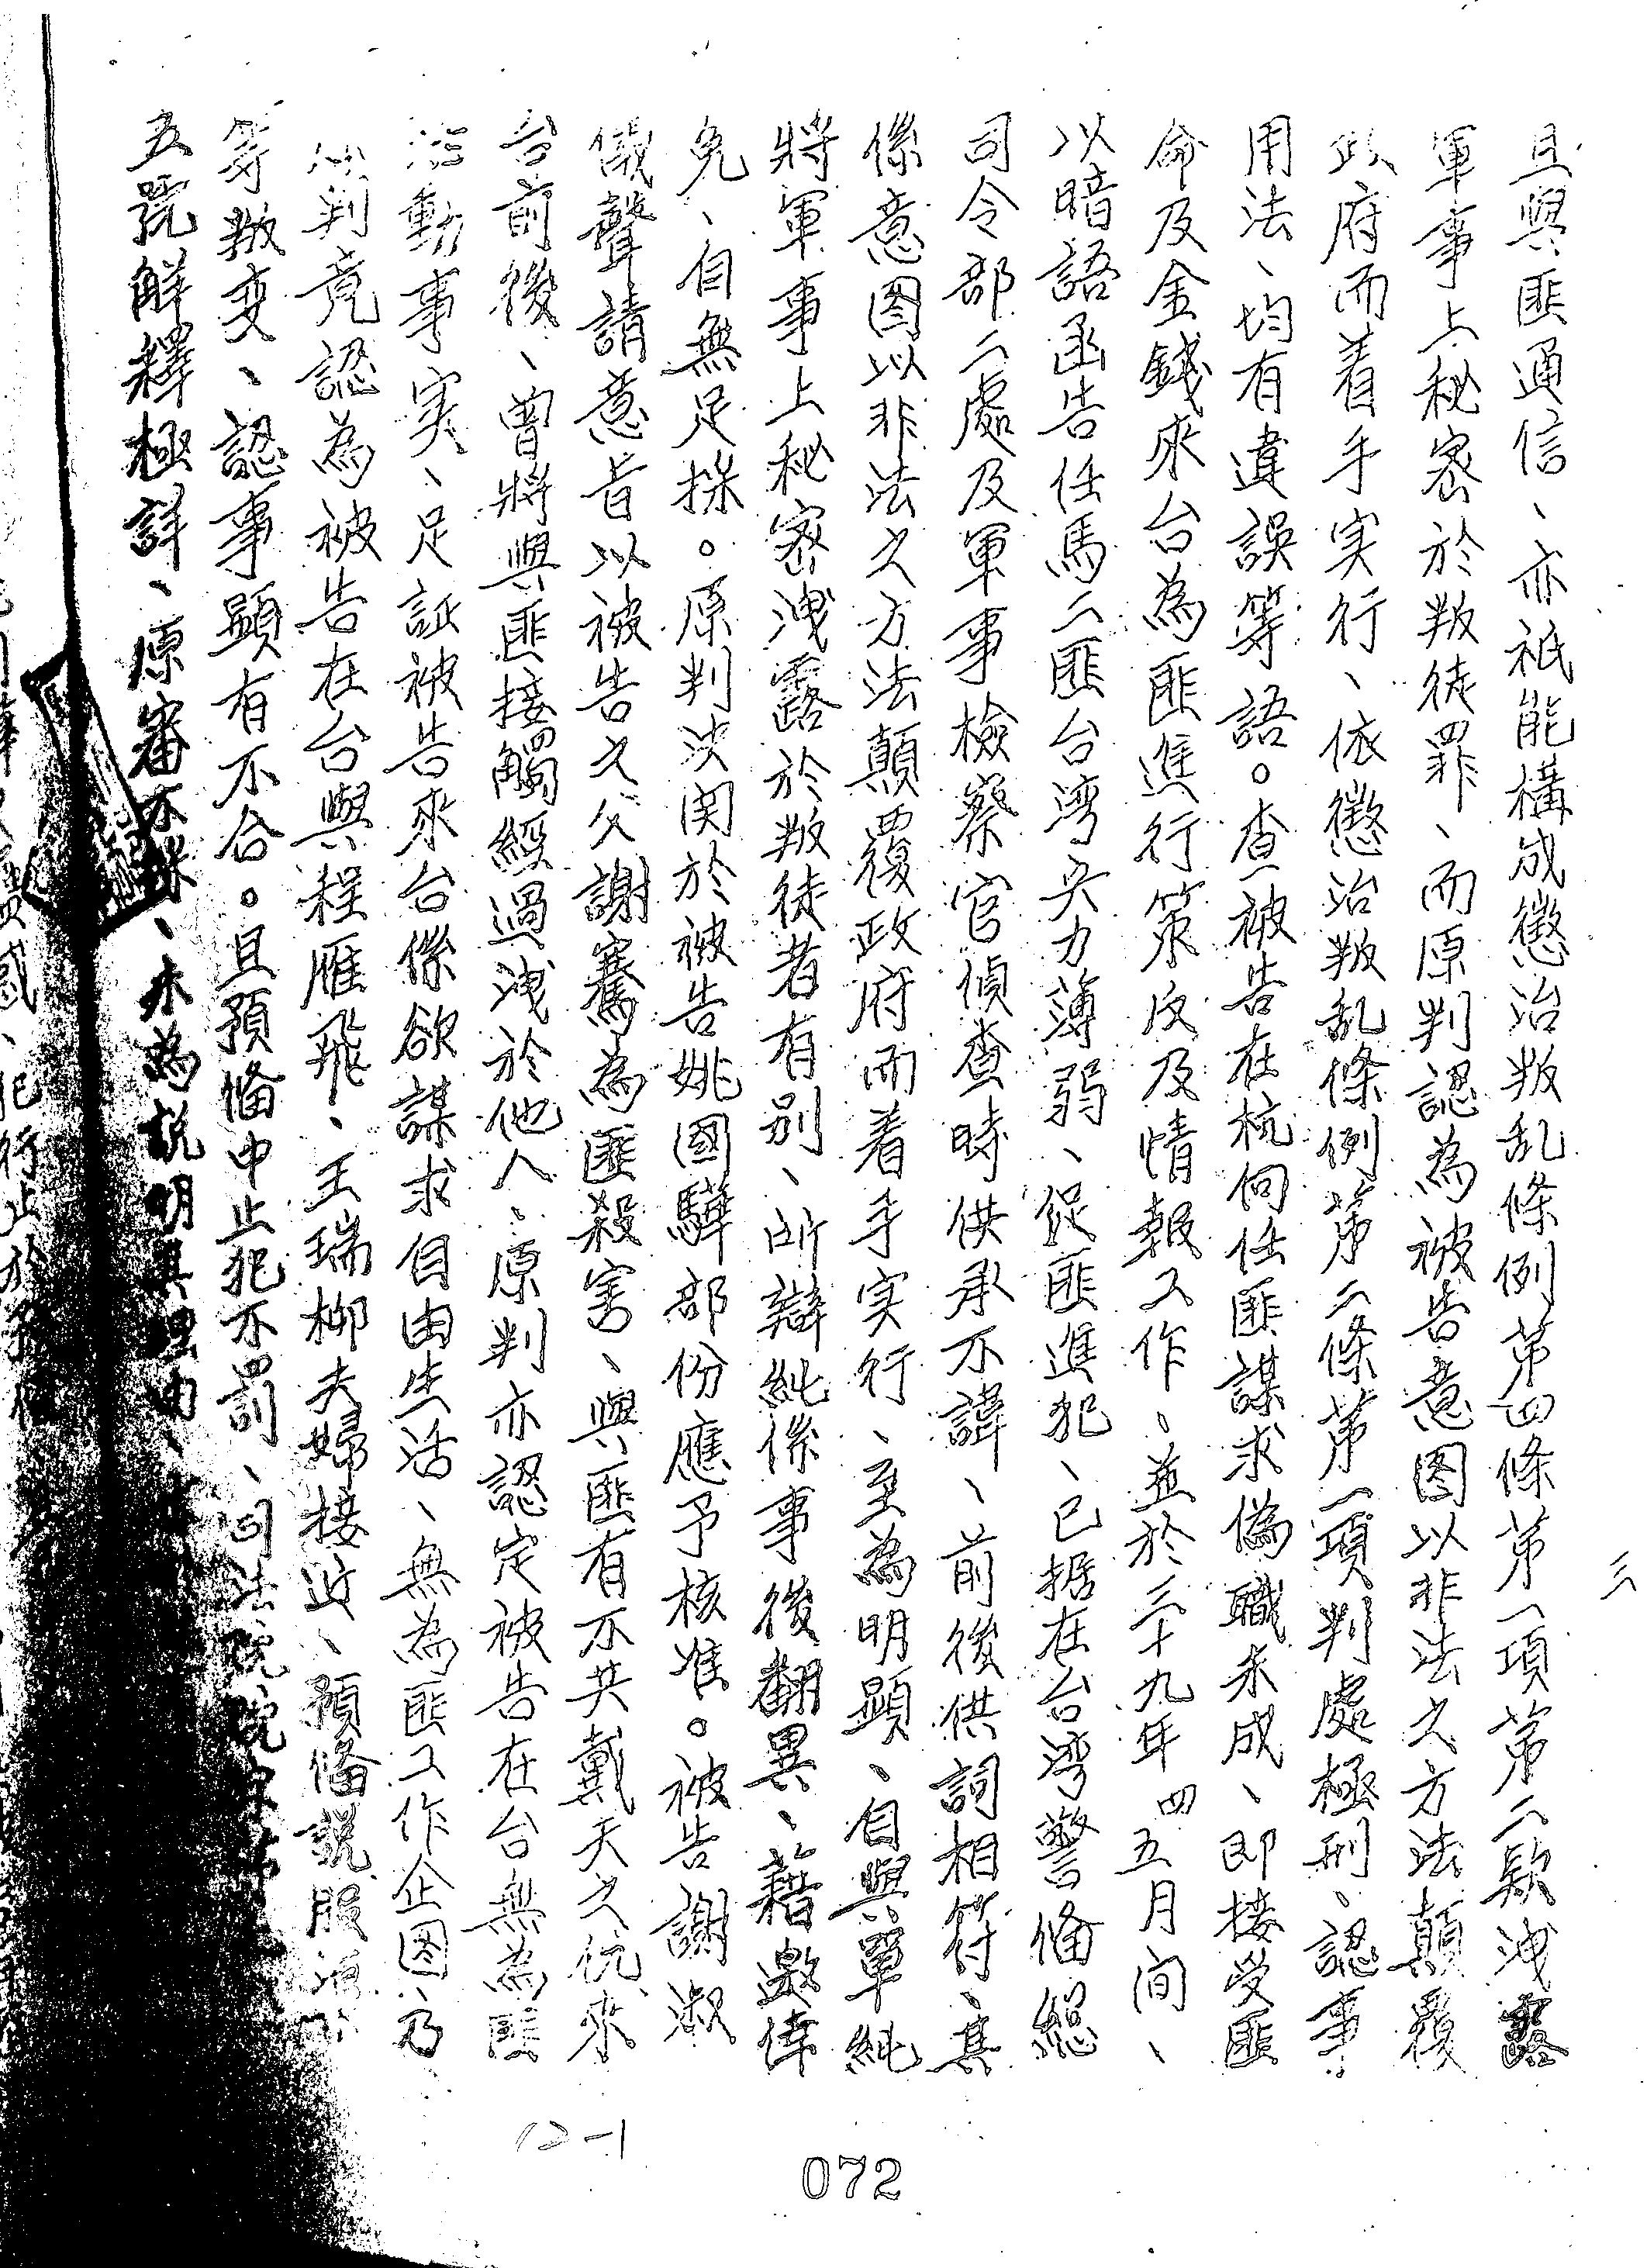 三
且與匪通信、亦祇能構成懲治叛乱條例第四條第一項第二款洩露
軍事上秘密於叛徒罪、而原判認為被告意図以非法之方法顛覆
政府而着手実行、依懲治叛乱條例第二條第一項判處極刑、認事
用法、均有違誤等語。查被告在杭向任匪謀求偽職未成、即接受匪
命及金錢來台為匪進行策反及情報工作、並於三十九年四五月间、
以暗語函告任馬二匪台湾兵力薄弱、促匪進犯、已據在台湾警俻總
司令部二處及軍事檢察官偵查時供承不諱、前後供詞相符、其
係意図以非法之方法顛覆政府而着手実行、至為明顯、自與單純
將軍事上秘密洩露於叛徒者有别、所辯純係事後翻異、藉邀倖
免、自無足採。原判决関於被告姚國驊部份應予核准。被告謝淑
儀聲請意旨以被告之父謝騫為匪殺害、與匪有不共戴天之仇、來
台前後、曾將與匪接觸經過洩於他人、原判亦認定被告在台無為匪
活動事実、足証被告來台係欲謀求自由生活、無為匪工作企図、乃
原判竟認為被告在台與程雁飛、王瑞柳夫婦接近、預俻説服
等叛变、認事顯有不合。且預俻中止犯不罰、司法院院
五號解釋極詳、原審不採、未為説明其理由、
犯行止於預俻
12-1
072